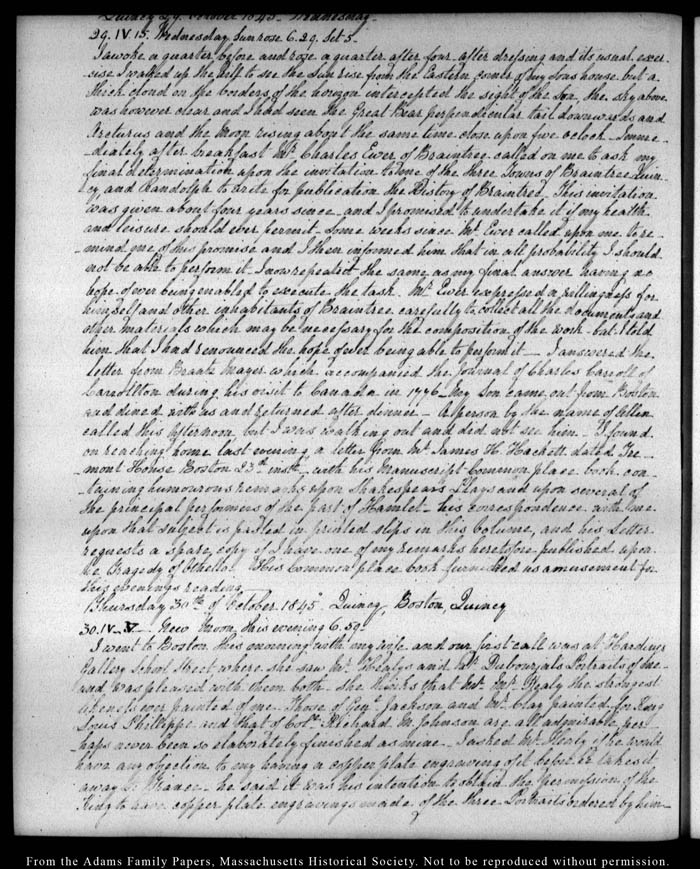 Quincy 29. October 1845. Wednesday.
29. IV. 15. Wednesday Sun rose 6.29. Set 5.
I awoke a quarter before and rose a quarter after four. after dressing and its usual exer-
cise I walked up the hill to see the Sun rise from the Eastern corner of my Sons house but a
thick cloud on the borders of the horizon intercepted the sight of the Sun, the sky above
was however clear and I had seen the Great Bear perpendicular tail downwards and
Arcturus and the Moon rising about the same time close upon five oclock. Imme-
diately after breakfast Mr. Charles Ewer of Braintree called on me to ask my
final determination upon the invitation to me of the three Towns of Braintree Quin-
cy, and Randolph to write for publication the History of Braintree. This invitation
was given about four years since and I promised to undertake it if my health
and leisure should ever permit. Some weeks since Mr Ewer called upon me to re-
mind me of this promise and I then informed him that in all probability I should
not be able to perform it. I now repeated the same as my final answer having no
hope of ever being enabled to execute the task. Mr. Ewer expressed a willingness for
himself and other inhabitants of Braintree carefully to collect all the documents and
other materials which may be necessary for the composition of the work but I told
him that I had renounced the hope of ever being able to perform it — I answered the
letter from Brantz Mayer which accompanied the Journal of Charles Carroll of
Carrollton during his visit to Canada in 1776. My Son came out from Boston
and dined with us and returned after dinner — A person by the name of Allen
called this afternoon but I was walking out and did not see him — I found
on reaching home last evening a letter from Mr James H. Hackett dated Tre-
mont House Boston 23d. inst. with his Manuscript Common place book con-
taining humourous remarks upon Shakespears Plays and upon several of
the principal performers of the part of Hamlet — his correspondence with me
upon that subject is pasted in printed slips in this volume, and his Letter
requests a spare copy if I have one of my remarks heretofore published upon
the Tragedy of Othello. This Common place book furnished us amusement for
this evenings reading
Thursday 30th of October 1845. Quincy, Boston, Quincy
30. IV. V. New Moon, this evening 6.59.
I went to Boston this morning with my wife and our first call was at Hardings
Gallery School Street where she saw Mr. Healys and Mr. Dubourjals Portraits of me
and was pleased with them both. She thinks that Mr. Healy the strongest
likeness ever painted of me. Those of Genl. Jackson and Mr. Clay painted for King
Louis Phillippe and that of Coll. Richard M. Johnson are all admirable, per-
haps never been so elaborately finished as mine. I asked Mr Healy if he would
have any objection to my having a copper plate engraving of it before he takes it
away to France — he said it was his intention to obtain the permission of the
King to have copper plate engravings made of the three Portraits ordered by him—
From the Adams Family Papers, Massachusetts Historical Society. Not to be reproduced without permission.